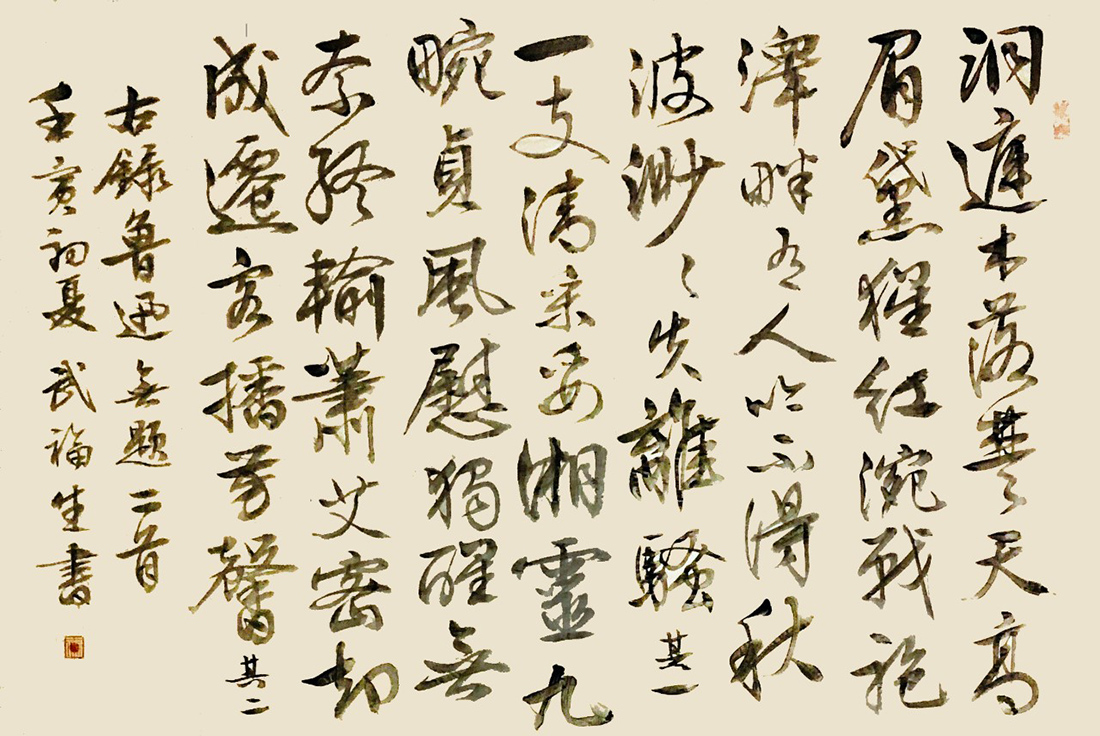 洞庭木落楚天高
眉黛猩紅涴戰袍
澤畔有人吟不得秋
波渺〻失離騷 其一
一支清采妥湘靈九
畹貞風慰獨醒無
奈終輸蕭艾密却
成遷客播芳馨 其二
右錄魯迅無題二首
壬寅初夏 武福生書